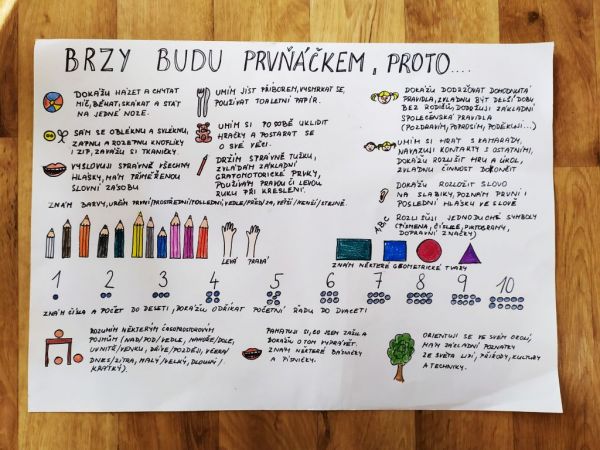 BRZY BUDU PRVŇÁČKEM, PROTO....
DOKÁŽU HÁZET A CHYTAT
MÍČ, BĚHAT, SKÁKAT A STÁT
NA JEDNÉ NOZE.
SÁM SE OBLÉKNU A SVLÉKNU,
ZAPNU A ROZEPNU KNOFLÍKY
I ZIP, ZAVÁŽU SI TKANIČKY.
VYSLOVUJI SPRÁVNĚ VŠECHNY
HLÁSKY, MÁM PŘIMĚŘENOU
SLOVNÍ ZÁSOBU
UMÍM JÍST PŘÍBOREM, VYSMRKAT SE,
POUŽÍVAT TOALETNÍ PAPÍR.
UMÍM SI PO SOBĚ UKLIDIT
HRAČKY A POSTARAT SE
O SVÉ VĚCI.
DRŽÍM SPRÁVNĚ TUŽKU,
ZVLÁDÁM ZÁKLADNÍ
GRAFOMOTORICKÉ PRVKY,
POUŽÍVÁM PRAVOU ČI LEVOU
RUKU PŘI KRESLENÍ.
DOKÁŽU DODRŽOVAT DOHODNUTÁ
PRAVIDLA, ZVLÁDNU BÝT DELŠÍ DOBU
BEZ RODIČŮ, DODRŽUJI ZÁKLADNÍ
SPOLEČENSKÁ PRAVIDLA
(POZDRAVÍM, POPROSÍM, PODĚKUJI...)
UMÍM SI HRÁT S KAMARÁDY,
NAVAZUJI KONTAKTY S OSTATNÍMI,
DOKÁŽU ROZLIŠIT HRU A ÚKOL,
ZVLÁDNU ČINNOST DOKONČIT
DOKÁŽU ROZLOŽIT SLOVO
NA SLABIKY, POZNÁM PRVNÍ I
POSLEDNÍ HLÁSKU VE SLOVĚ
ABC
ROZLIŠUJI JEDNODUCHÉ SYMBOLY
(PÍSMENA, ČÍSLICE, PIKTOGRAMY,
DOPRAVNÍ ZNAČKY)
ZNÁM BARVY, URČÍM PRVNÍ/PROSTŘEDNÍ/POSLEDNÍ, VEDLE/PŘED/ZA, VĚTŠÍ/MENŠÍ/STEJNÉ.
LEVÁ PRAVÁ
ZNÁM NĚKTERÉ GEOMETRICKÉ TVARY
1 2 3 4 5 6 7 8 9 10
ZNÁM ČÍSLA A POČET DO DESETI, DOKÁŽU ODŘÍKAT POČETNÍ ŘADU DO DVACETI
ROZUMÍM NĚKTERÝM ČASOPROSTOROVÝM
POJMŮM (NAD/POD/VEDLE, NAHOŘE/DOLE,
UVNITŘ/VENKU, DŘÍVE/POZDĚJI, VČERA/
DNES/ZÍTRA, MALÝ/VELKÝ, DLOUHÝ/
KRÁTKÝ).
PAMATUJI SI, CO JSEM ZAŽIL A
DOKÁŽU O TOM VYPRÁVĚT.
ZNÁM NĚKTERÉ BÁSNIČKY
A PÍSNIČKY.
ORIENTUJI SE VE SVÉM OKOLÍ,
MÁM ZÁKLADNÍ POZNATKY
ZE SVĚTA LIDÍ, PŘÍRODY, KULTURY
A TECHNIKY.